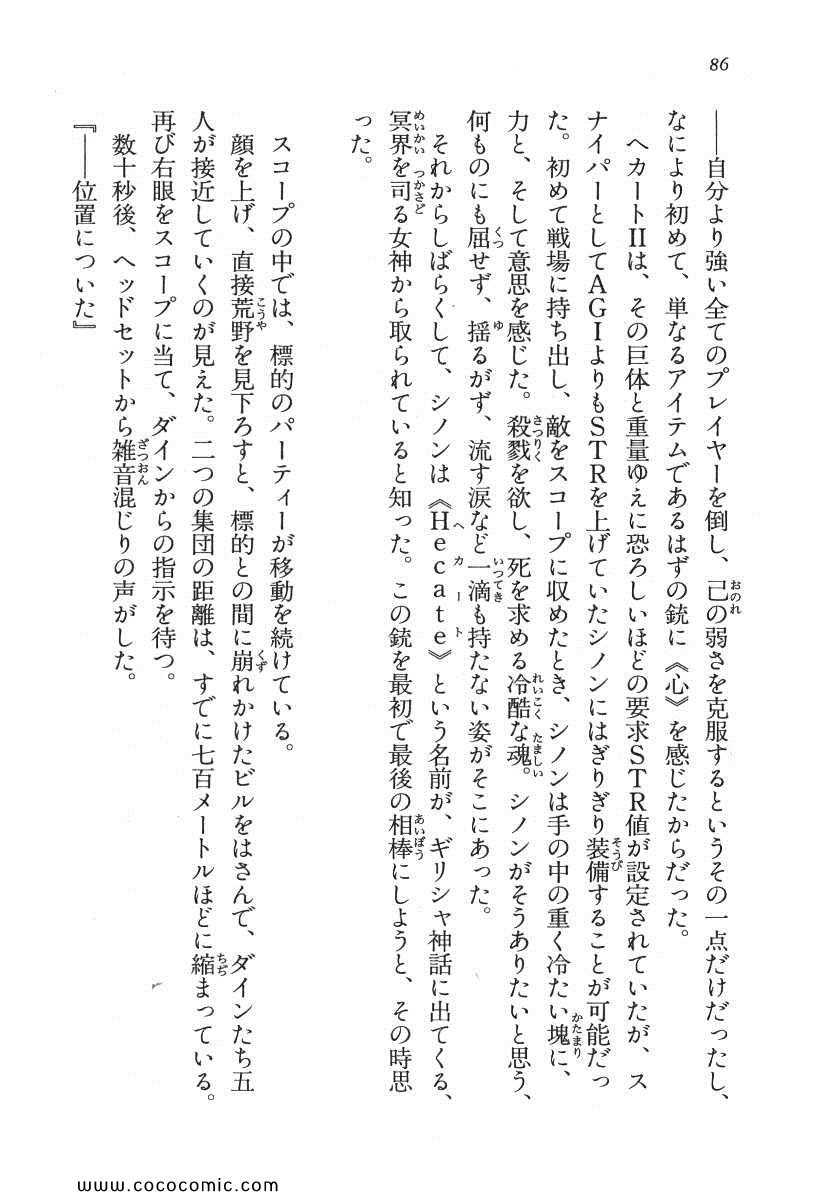 86
――自分より強い全てのプレイヤーを倒し、己の弱さを克服するというその一点だけだったし、
なにより初めて、単なるアイテムであるはずの銃に《心》を感じたからだった。
ヘカートIIは、その巨体と重量ゆえに恐ろしいほどの要求STR値が設定されていたが、ス
ナイパーとしてAGIよりもSTRを上げていたシノンにはぎりぎり装備することが可能だっ
た。初めて戦場に持ち出し、敵をスコープに収めたとき、シノンは手の中の重く冷たい塊に、
力と、そして意思を感じた。殺戮を欲し、死を求める冷酷な魂。シノンがそうありたいと思う、
何ものにも屈せず、揺るがず、流す涙など一滴も持たない姿がそこにあった。
それからしばらくして、シノンは《Hecate》という名前が、ギリシャ神話に出てくる、
冥界を司る女神から取られていると知った。この銃を最初で最後の相棒にしようと、その時思
った。
スコープの中では、標的のパーティーが移動を続けている。
顔を上げ、直接荒野を見下ろすと、標的との間に崩れかけたビルをはさんで、ダインたち五
人が接近していくのが見えた。二つの集団の距離は、すでに七百メートルほどに縮まっている。
再び右眼をスコープに当て、ダインからの指示を待つ。
数十秒後、ヘッドセットから雑音混じりの声がした。
『――位置についた』
www.cococomic.com/